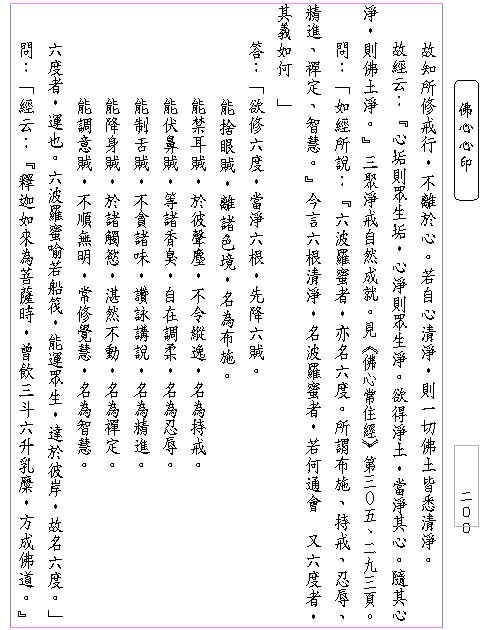 佛心心印
二００
故知所修戒行，不離於心。若自心清淨，則一切佛土皆悉清淨。
故經云：『心垢則眾生垢，心淨則眾生淨。欲得淨土，當淨其心。隨其心
淨，則佛土淨。』三聚淨戒自然成就。見《佛心常住經》第三０五、二九三頁。
問：「如經所說：『六波羅蜜者，亦名六度。所謂布施、持戒、忍辱、
精進、禪定、智慧。』今言六根清淨，名波羅蜜者，若何通會　又六度者，
其義如何　」
答：「欲修六度，當淨六根，先降六賊。
能捨眼賊，離諸色境，名為布施。
能禁耳賊，於彼聲塵，不令縱逸，名為持戒。
能伏鼻賊，等諸香臭，自在調柔，名為忍辱。
能制舌賊，不貪諸味，讚詠講說，名為精進。
能降身賊，於諸觸慾，湛然不動，名為禪定。
能調意賊，不順無明，常修覺慧，名為智慧。
六度者，運也。六波羅蜜喻若船筏，能運眾生，達於彼岸，故名六度。」
問：「經云：『釋迦如來為菩薩時，曾飲三斗六升乳糜，方成佛道。』